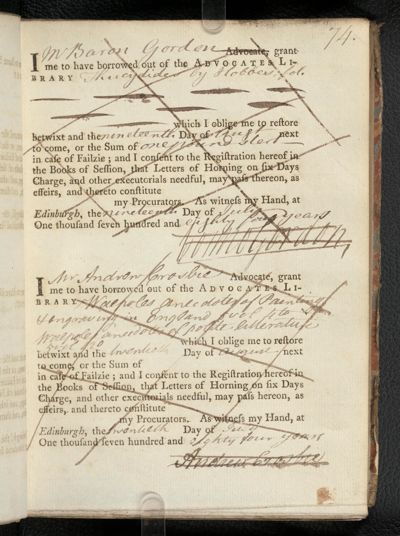 74.
I Mr Baron Gordon Advocate, grant
me to have borrowed out of the ADVOCATES LI-
BRARY Thucydides by Hobbes, fol.
which I oblige me to restore
betwixt and the nineteenth Day of August next
to come, or the Sum of one pound sterl
in case of Failzie; and I consent to the Registration hereof in
the Books of Session, that Letters of Horning on six Days
Charge, and other executorials needful, may pass thereon, as
effeirs, and thereto constitute
my Procurators. As witness my Hand, at
Edinburgh, the nineteenth Day of July
One thousand seven hundred and eighty four years
Gordon
I Mr Andrew Crosbie Advocate, grant
me to have borrowed out of the ADVOCATES LI-
BRARY Walpoles anecdotes of Painting
& engraving in England 4to
Walpoles anecdotes of
which I oblige me to restore
betwixt and the twentieth Day of August next
to come, or the Sum of
in case of Failzie; and I consent to the Registration hereof in
the Books of Session, that Letters of Horning on six Days
Charge, and other executorials needful, may pass hereon, as
effeirs, and thereto constitute
my Procurators. As witness my Hand, at
Edinburgh, the twentieth Day of July
One thousand seven hundred and eighty four years
Andrew Crosbie